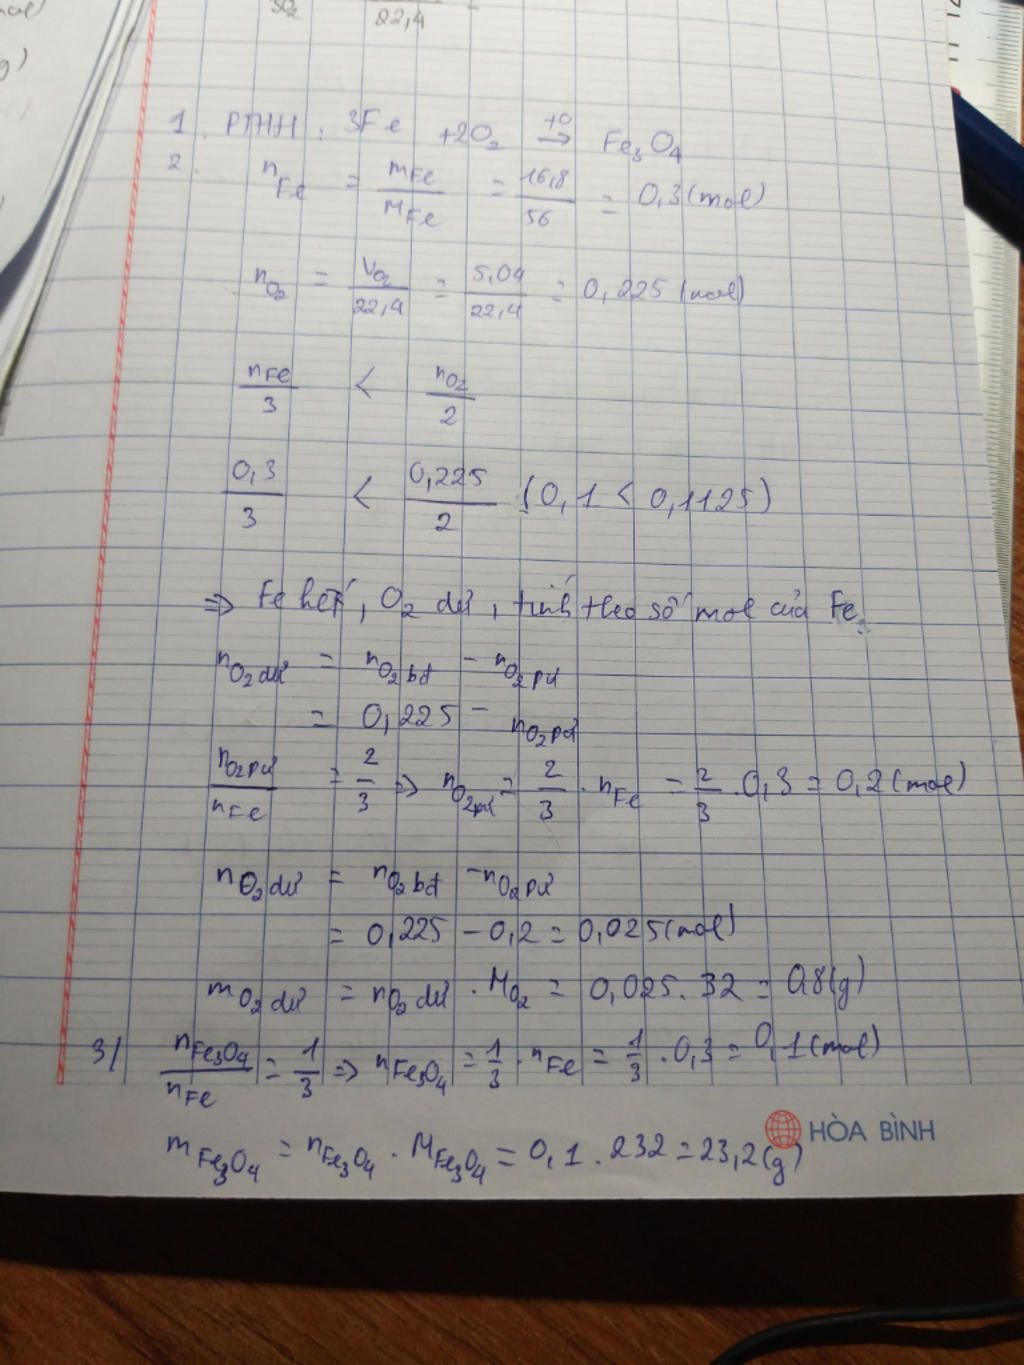 SO₂ 22,4
1. PTHH : 3Fe +2O₂ t° → Fe₃O₄
2. n_Fe = m_Fe / M_Fe = 16,8 / 56 = 0,3 (mol)
n_O₂ = V_O₂ / 22,4 = 5,04 / 22,4 = 0,225 (mol)
n_Fe / 3 < n_O₂ / 2
0,3 / 3 < 0,225 / 2 (0,1 < 0,1125)
⇒ Fe hết, O₂ dư, tính theo số mol của Fe.
n_O₂ dư = n_O₂ bđ - n_O₂ pư
= 0,225 - n_O₂ pư
n_O₂ pư / n_Fe = 2/3 ⇒ n_O₂ pư = 2/3 . n_Fe = 2/3 . 0,3 = 0,2 (mol)
n_O₂ dư = n_O₂ bđ - n_O₂ pư
= 0,225 - 0,2 = 0,025 (mol)
m_O₂ dư = n_O₂ dư . M_O₂ = 0,025 . 32 = 0,8 (g)
3/ n_Fe₃O₄ / n_Fe = 1/3 ⇒ n_Fe₃O₄ = 1/3 . n_Fe = 1/3 . 0,3 = 0,1 (mol)
HÒA BÌNH
m_Fe₃O₄ = n_Fe₃O₄ . M_Fe₃O₄ = 0,1 . 232 = 23,2 (g)